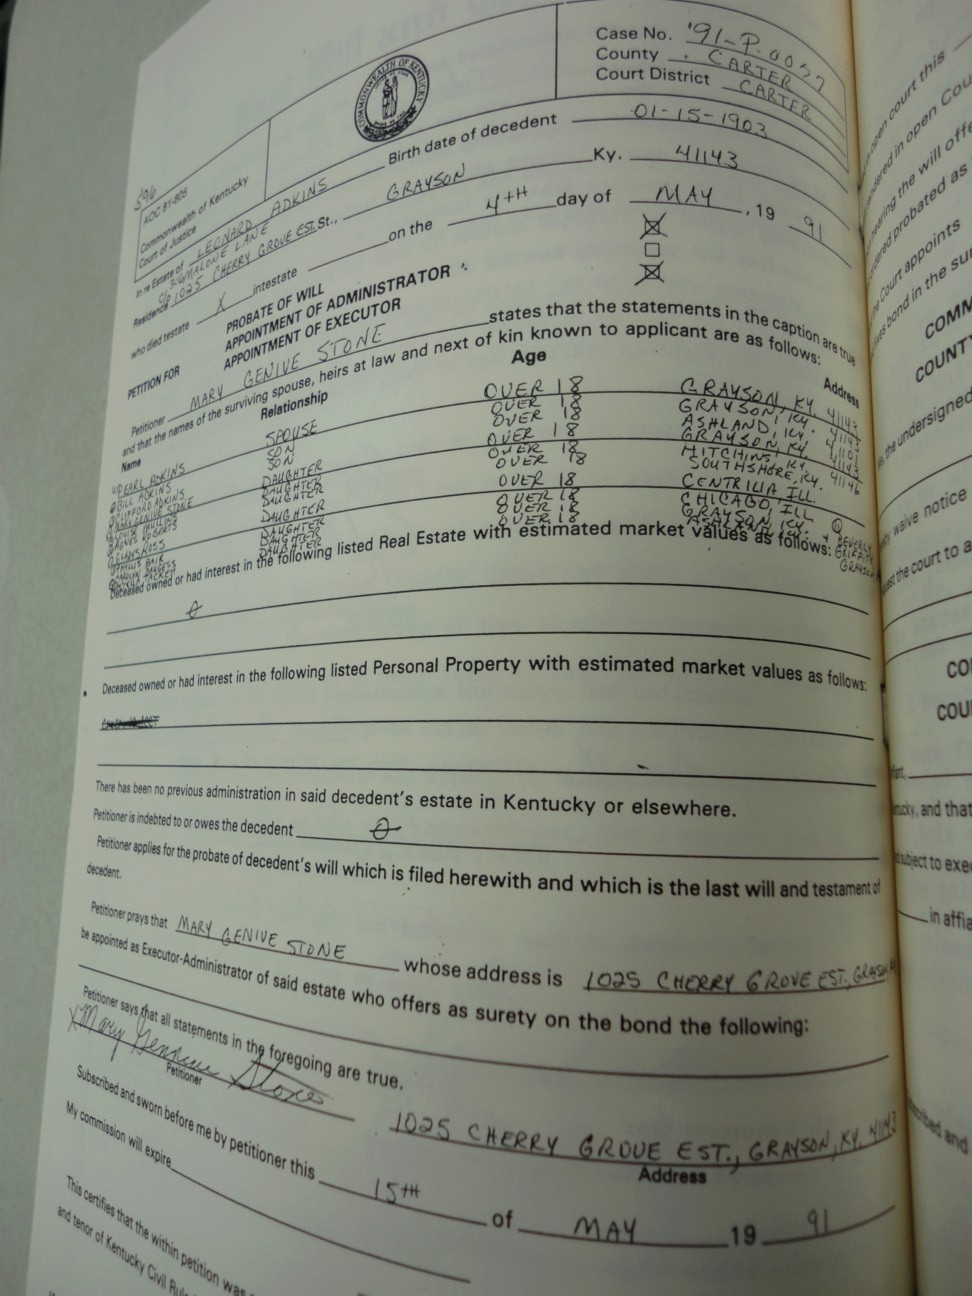 Case No. '91-P-0057
County CARTER
Court District CARTER
COMMONWEALTH OF KENTUCKY
596
AOC 81-805
Commonwealth of Kentucky
Court of Justice
Birth date of decedent 01-15-1903
In re Estate of LEONARD ADKINS
MALONE LANE
Residence 1025 CHERRY GROVE EST. St., GRAYSON Ky. 41143
who died testate X intestate on the 4TH day of MAY, 19 91
PETITION FOR
PROBATE OF WILL
APPOINTMENT OF ADMINISTRATOR
APPOINTMENT OF EXECUTOR
Petitioner MARY GENIVE STONE states that the statements in the caption are true
and that the names of the surviving spouse, heirs at law and next of kin known to applicant are as follows:
Name Relationship Age Address
PEARL ADKINS SPOUSE OVER 18 GRAYSON, KY. 41143
BILL ADKINS SON OVER 18 GRAYSON, KY. 41143
CLIFFORD ADKINS SON OVER 18 ASHLAND, KY. 41101
MARY GENIVE STONE DAUGHTER OVER 18 GRAYSON, KY. 41143
DAUGHTER OVER 18 HITCHINS, KY. 41146
AGNES ROBERTS DAUGHTER OVER 18 SOUTHSHORE, KY.
ROSS DAUGHTER OVER 18 CENTRILIA ILL
PHYLLIS BAIR DAUGHTER OVER 18 CHICAGO, ILL
BURGESS DAUGHTER OVER 18 GRAYSON, KY.
DAUGHTER OVER 18 ASHLAND, KY.
BEVERLY
GRIFFITH
GRAYSON
Deceased owned or had interest in the following listed Real Estate with estimated market values as follows:
Deceased owned or had interest in the following listed Personal Property with estimated market values as follows:
There has been no previous administration in said decedent's estate in Kentucky or elsewhere.
Petitioner is indebted to or owes the decedent
Petitioner applies for the probate of decedent's will which is filed herewith and which is the last will and testament of
decedent.
Petitioner prays that MARY GENIVE STONE whose address is 1025 CHERRY GROVE EST., GRAYSON
be appointed as Executor-Administrator of said estate who offers as surety on the bond the following:
Petitioner says that all statements in the foregoing are true.
X Mary Genive Stone
Petitioner
1025 CHERRY GROVE EST., GRAYSON, KY. 41143
Address
Subscribed and sworn before me by petitioner this 15TH of MAY 19 91
My commission will expire
This certifies that the within petition was
and tenor of Kentucky Civil
open court this
in open
hearing the will
probated as
Court appoints
bond in the
COUNTY
the undersigned
waive notice
the court to
and that
subject to
in
and